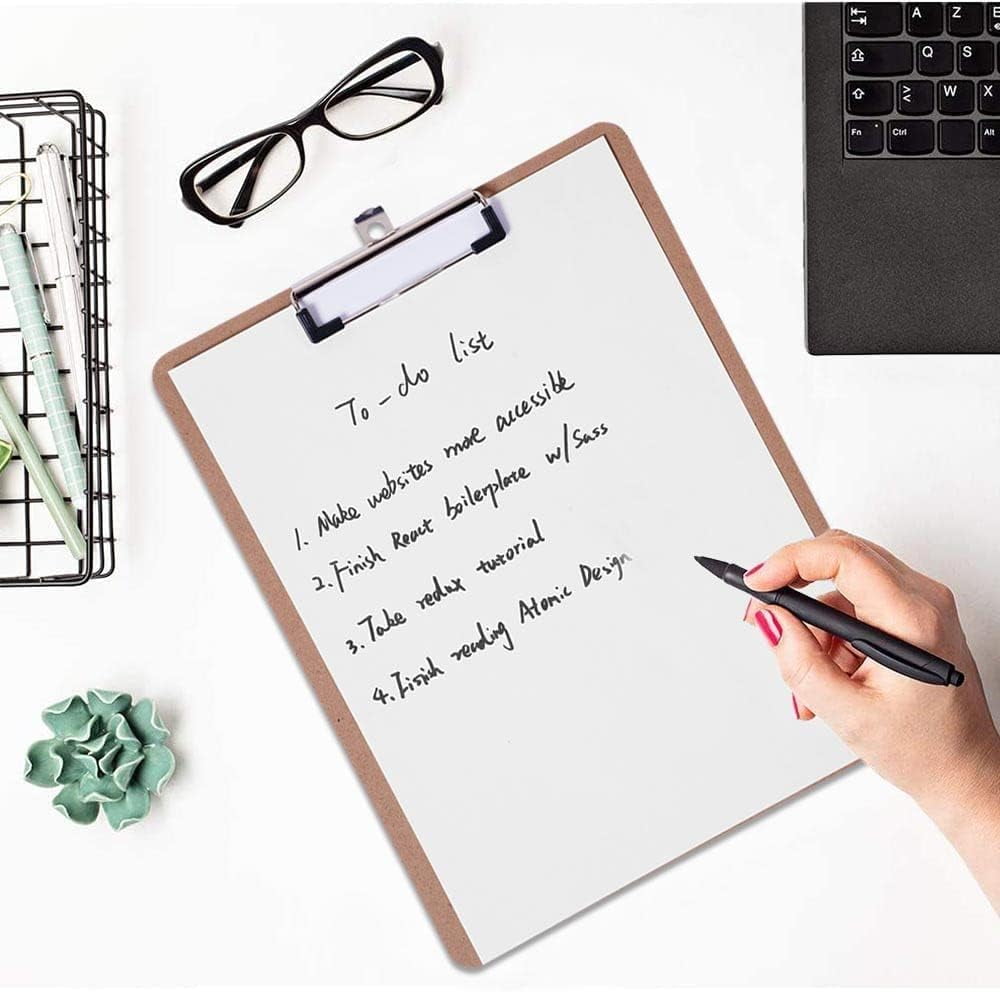 To-do list
1. Make websites more accessible
2. Finish React boilerplate w/Sass
3. Take redux tutorial
4. Finish reading Atomic Design
A Z
Q S
W X
Fn Ctrl Alt